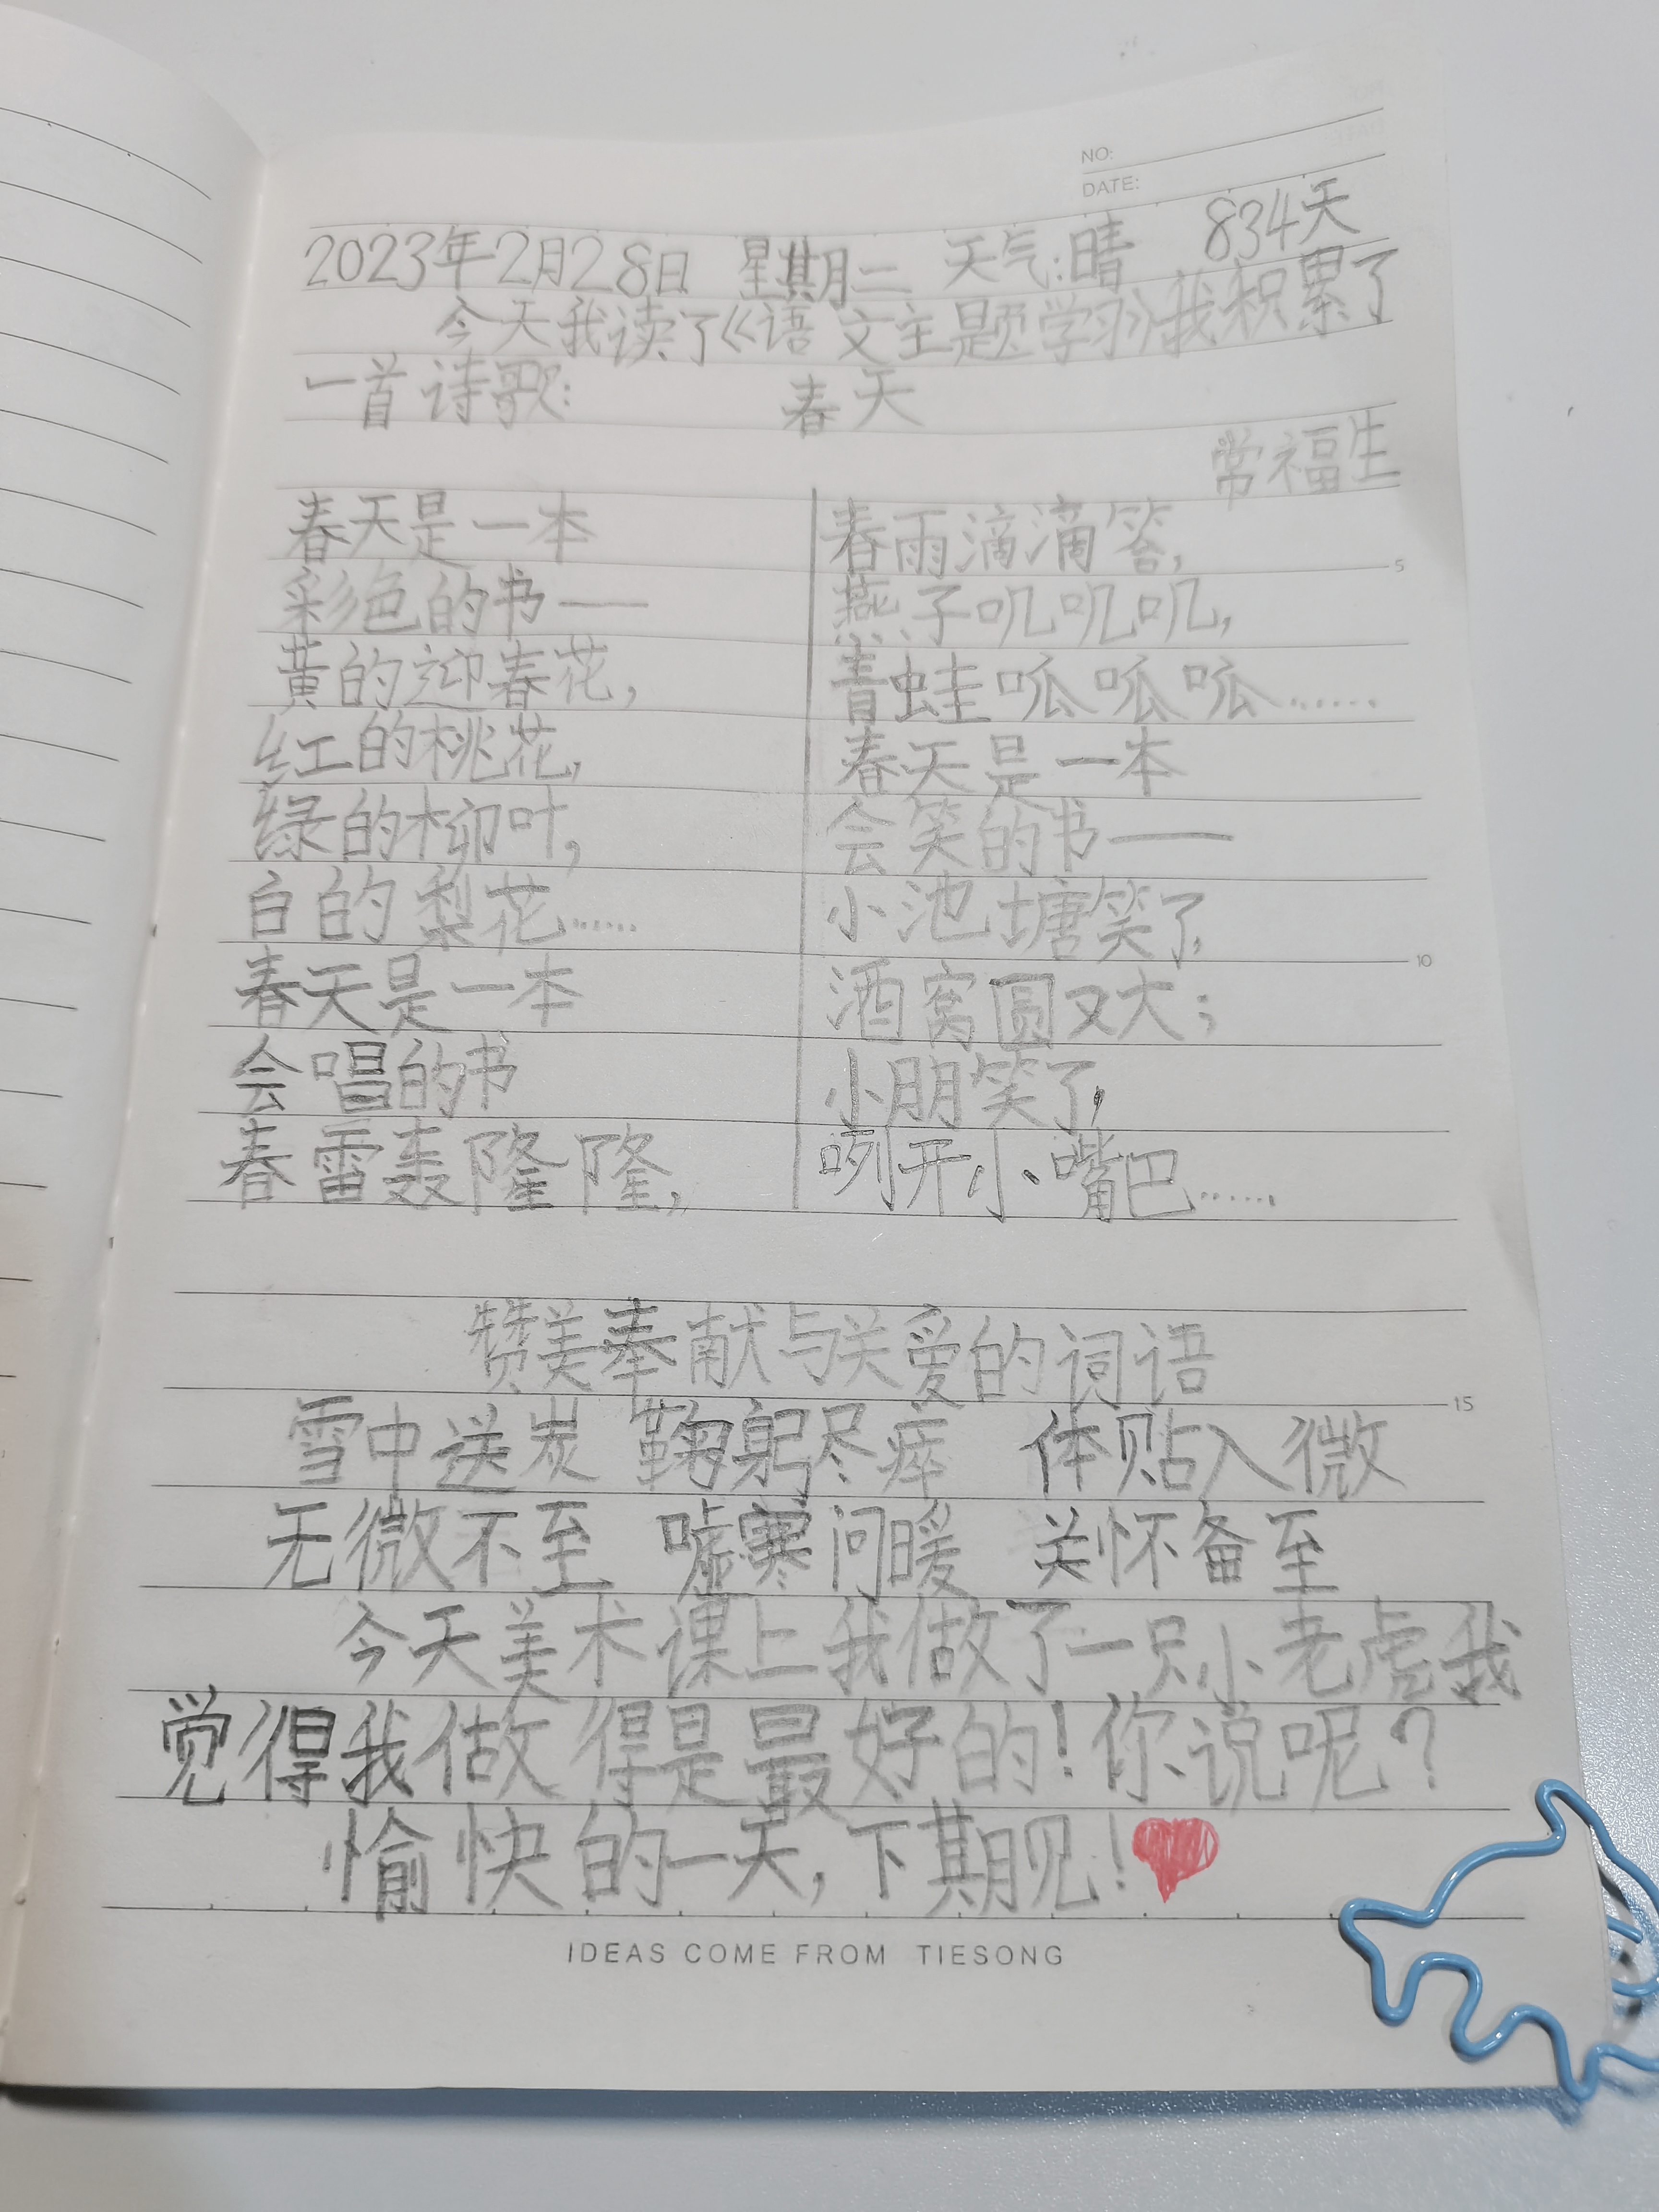 NO:
DATE:
2023年2月28日 星期二 天气:晴 834天
今天我读了《语文主题学习》我积累了
一首诗歌: 春天
常福生
春天是一本
彩色的书——
黄的迎春花,
红的桃花,
绿的柳叶,
白的梨花……
春天是一本
会唱的书
春雷轰隆隆,
春雨滴滴答,
燕子叽叽叽,
青蛙呱呱呱……
春天是一本
会笑的书——
小池塘笑了,
酒窝圆又大;
小朋笑了,
咧开小嘴巴……
5
10
赞美奉献与关爱的词语
15
雪中送炭 鞠躬尽瘁 体贴入微
无微不至 嘘寒问暖 关怀备至
今天美术课上我做了一只小老虎我
觉得我做得是最好的!你说呢?
愉快的一天,下期见!
IDEAS COME FROM TIESONG